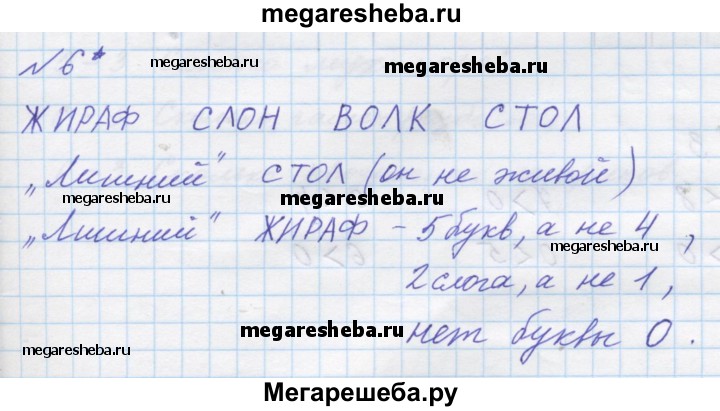 megaresheba.ru
№ 6* megaresheba.ru megaresheba.ru
ЖИРАФ СЛОН ВОЛК СТОЛ
„Лишний" СТОЛ (он не живой)
megaresheba.ru
„Лишний" ЖИРАФ – 5 букв, а не 4,
megaresheba.ru
2 слога, а не 1,
megaresheba.ru нет буквы О.
megaresheba.ru
Мегарешеба.ру